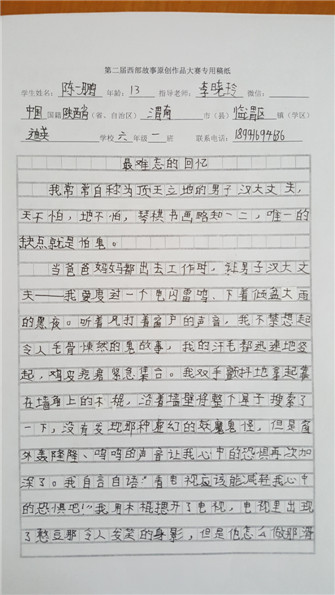 第二届西部故事原创作品大赛专用稿纸
学生姓名：陈一鹏 年龄：13 指导老师：李晓玲 微信：
中国 国籍 陕西省（省、自治区） 渭南 市（县） 临渭区 镇（学区）
学校 六 年级 一 班 联系电话：
最难忘的回忆
我常常自称为顶天立地的男子汉大丈夫，
天不怕，地不怕，琴棋书画略知一二，唯一的
缺点就是怕鬼。
当爸爸妈妈都出去工作时，男子汉大丈
夫——我要度过一个电闪雷鸣、下着倾盆大雨
的黑夜。听着风打着窗户的声音，我不禁想起
令人毛骨悚然的鬼故事，我的汗毛都迅速地竖
起，鸡皮疙瘩紧急集合。我双手颤抖地拿起
在墙角上的木棍，沿着墙壁将整个屋子搜索了
一下，没有发现那种虚幻的妖魔鬼怪，但是窗
外轰隆隆、呜呜的声音让我心中的恐惧再次加
深了。我自言自语：“看电视应该能减轻我心中
的恐惧吧！”我用木棍摁开了电视，电视里出现
了憨豆那令人发笑的身影，但是他怎么做那滑